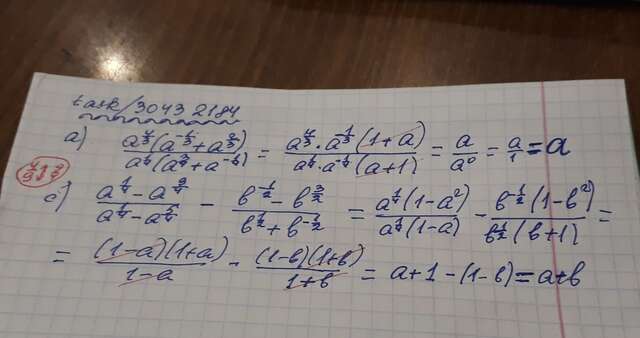 task/30432184
a) (a^{4/3}(a^{-1/3}+a^{2/3}))/(a^{1/4}(a^{3/4}+a^{-1/4})) = (a^{4/3}·a^{-1/3}(1+a))/(a^{1/4}·a^{-1/4}(a+1)) = a/a^0 = a/1 = a
c) (a^{1/4}-a^{9/4})/(a^{1/4}-a^{5/4}) - (b^{-1/2}-b^{3/2})/(b^{1/2}+b^{-1/2}) = (a^{1/4}(1-a^2))/(a^{1/4}(1-a)) - (b^{-1/2}(1-b^2))/(b^{-1/2}(b+1)) =
= ((1-a)(1+a))/(1-a) - ((1-b)(1+b))/(1+b) = a+1-(1-b) = a+b